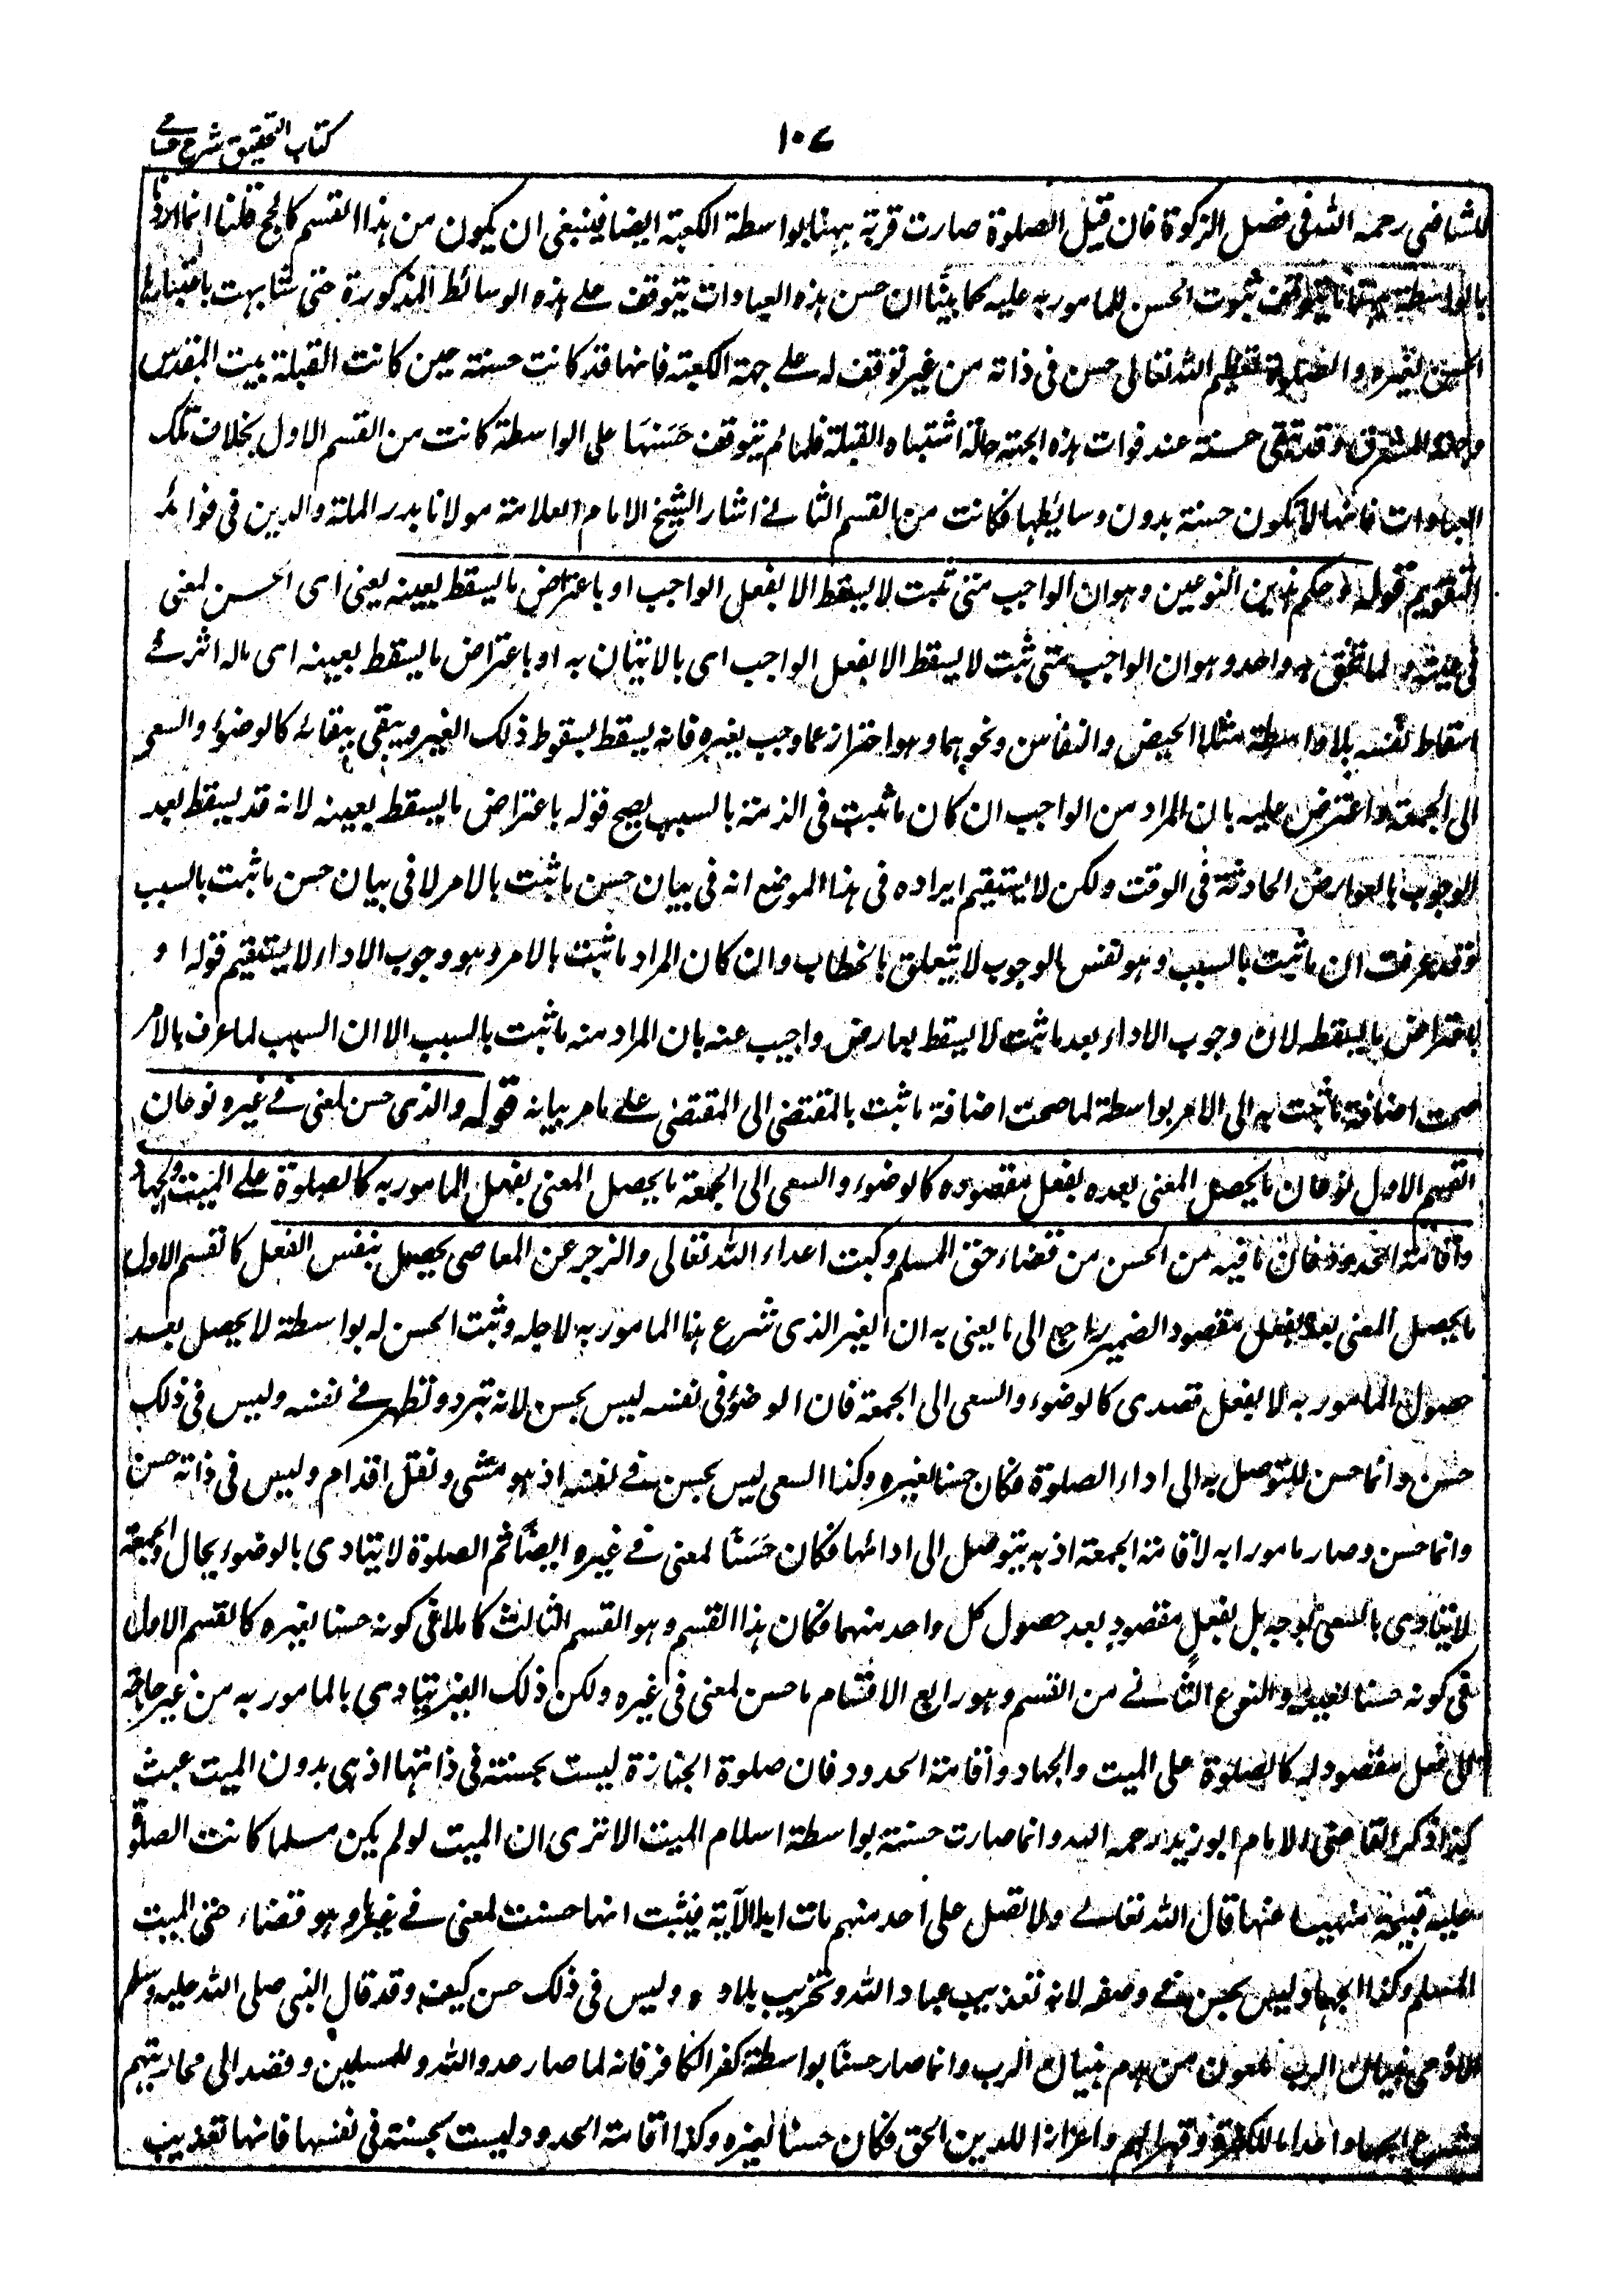 كتاب التحقيق شرح حسامى
١٠٧
للشافعى رحمه الله فى فصل الزكوة فان قيل الصلوة صارت قربة بهذا بواسطة الكعبة ايضا فينبغى ان يكون من هذا القسم كالحج قلنا انما اردنا
بالواسطة ههنا ما يتوقف ثبوت الحسن للمامور به عليه كما بينّا ان حسن هذه العبادات يتوقف على هذه الوسائط المذكورة حتى شابهت باعتبارها
الحسن لغيره والصلوة تعظيم الله تعالى حسن فى ذاته من غير توقف له على جهة الكعبة فانها قد كانت حسنة حين كانت القبلة بيت المقدس
وجهة المشرق وقد تبقى حسنة عند فوات هذه الجهة حالة اشتباه القبلة فلما لم يتوقف حَسَنهَا على الواسطة كانت من القسم الاول بخلاف تلك
العبادات فانها لا تكون حسنة بدون وسائطها فكانت من القسم الثانى اشار الشيخ الامام العلامة مولانا بدر الملة والدين فى فوائد
التقويم قوله وحكم هذين النوعين وهو ان الواجب متى ثبت لا يسقط الا بفعل الواجب او باعتراض ما يسقط بعينه يعنى اى الحسن لمعنى
فى عينه و واحد وهو ان الواجب متى ثبت لا يسقط الا بفعل الواجب اى بالاتيان به او باعتراض ما يسقط بعينه اى ماله اثر فى
اسقاط نفسه بلا واسطة مثل الحيض والنفاس ونحوهما وهو احتراز عما وجب بغيره فانه يسقط بسقوط ذلك الغير ويبقى ببقائه كالوضوء والسعى
الى الجمعة واعترض عليه بان المراد من الواجب ان كان ما ثبت فى الذمة بالسبب يصح قوله باعتراض ما يسقط بعينه لانه قد يسقط بعد
الوجوب بالعوارض الحادثة فى الوقت ولكن لا يستقيم ايراده فى هذا الموضع انه فى بيان حسن ما ثبت بالامر لا فى بيان حسن ما ثبت بالسبب
فقد عرفت ان ما ثبت بالسبب وهو نفس الوجوب لا يتعلق بالخطاب وان كان المراد ما ثبت بالامر وهو وجوب الاداء لا يستقيم قوله او
باعتراض ما يسقطه لان وجوب الاداء بعد ما ثبت لا يسقط بعارض واجيب عنه بان المراد منه ما ثبت بالسبب الا ان السبب لما عرف بالامر
صحت اضافة ما ثبت به الى الامر بواسطة لما صحت اضافة ما ثبت بالمقتضى الى المقتضى على ما مر بيانه قوله والذى حسن لمعنى فى غيره نوعان
القسم الاول نوعان ما يحصل المعنى بعده بفعل مقصوده كالوضوء والسعى الى الجمعة ما يحصل المعنى بفعل المامور به كالصلوة على الميت والجهاد
واقامة الحدود فان ما فيه من الحسن من قضاء حق المسلم وكبت اعداء الله تعالى والزجر عن المعاصى يحصل بنفس الفعل كالقسم الاول
ما يحصل المعنى بعده بفعل مقصود الضمير راجع الى ما يعنى به ان الغير الذى شرع هذا المامور به لاجله وثبت الحسن له بواسطة لا يحصل بعد
حصول المامور به الا بفعل قصدى كالوضوء والسعى الى الجمعة فان الوضوء فى نفسه ليس بحسن لانه تبرد وتطهر فى نفسه وليس فى ذلك
حسن وانما حسن للتوصل به الى اداء الصلوة فكان حسنا لغيره وكذا السعى ليس بحسن فى نفسه اذ هو مشى ونقل اقدام وليس فى ذاته حسن
وانما حسن وصار مامورا به لاقامة الجمعة اذ به يتوصل الى ادائها فكان حَسَنًا لمعنى فى غيره ايضًا ثم الصلوة لا يتادى بالوضوء بحال والجمعة
لا يتادى بالسعى بوجه بل بفعلٍ مقصودٍ بعد حصول كل واحد منهما فكان هذا القسم وهو القسم الثالث كاملا فى كونه حسنا لغيره كالقسم الاول
فى كونه حسنا لعينه والنوع الثانى من القسم وهو رابع الاقسام ما حسن لمعنى فى غيره ولكن ذلك الغير يتادى بالمامور به من غير حاجة
الى فعل مقصود له كالصلوة على الميت والجهاد واقامة الحدود فان صلوة الجنازة ليست بحسنة فى ذاتها اذ هى بدون الميت عبث
كذا ذكر القاضى الامام ابو زيد رحمه الله وانما صارت حسنة بواسطة اسلام الميت الا ترى ان الميت لو لم يكن مسلما كانت الصلوة
عليه قبيحة منهيا عنها قال الله تعالى ولا تصل على احد منهم مات ابدا الآية فيثبت انها حسنت لمعنى فى غيرها وهو قضاء حق الميت
المسلم وكذا الجهاد ليس بحسن فى وصفه لانه تعذيب عباد الله وتخريب بلاده وليس فى ذلك حسن كيف وقد قال النبى صلى الله عليه وسلم
الآدمى بنيان الرب ملعون من هدم بنيان الرب وانما صار حسنًا بواسطة كفر الكافر فانه لما صار عدو الله وللمسلمين وقصد الى محاربتهم
شرع الجهاد اعداما للكفرة وقهرا لهم واعزازا للدين الحق فكان حسنا لغيره وكذا اقامة الحدود ليست بحسنة فى نفسها فانها تعذيب